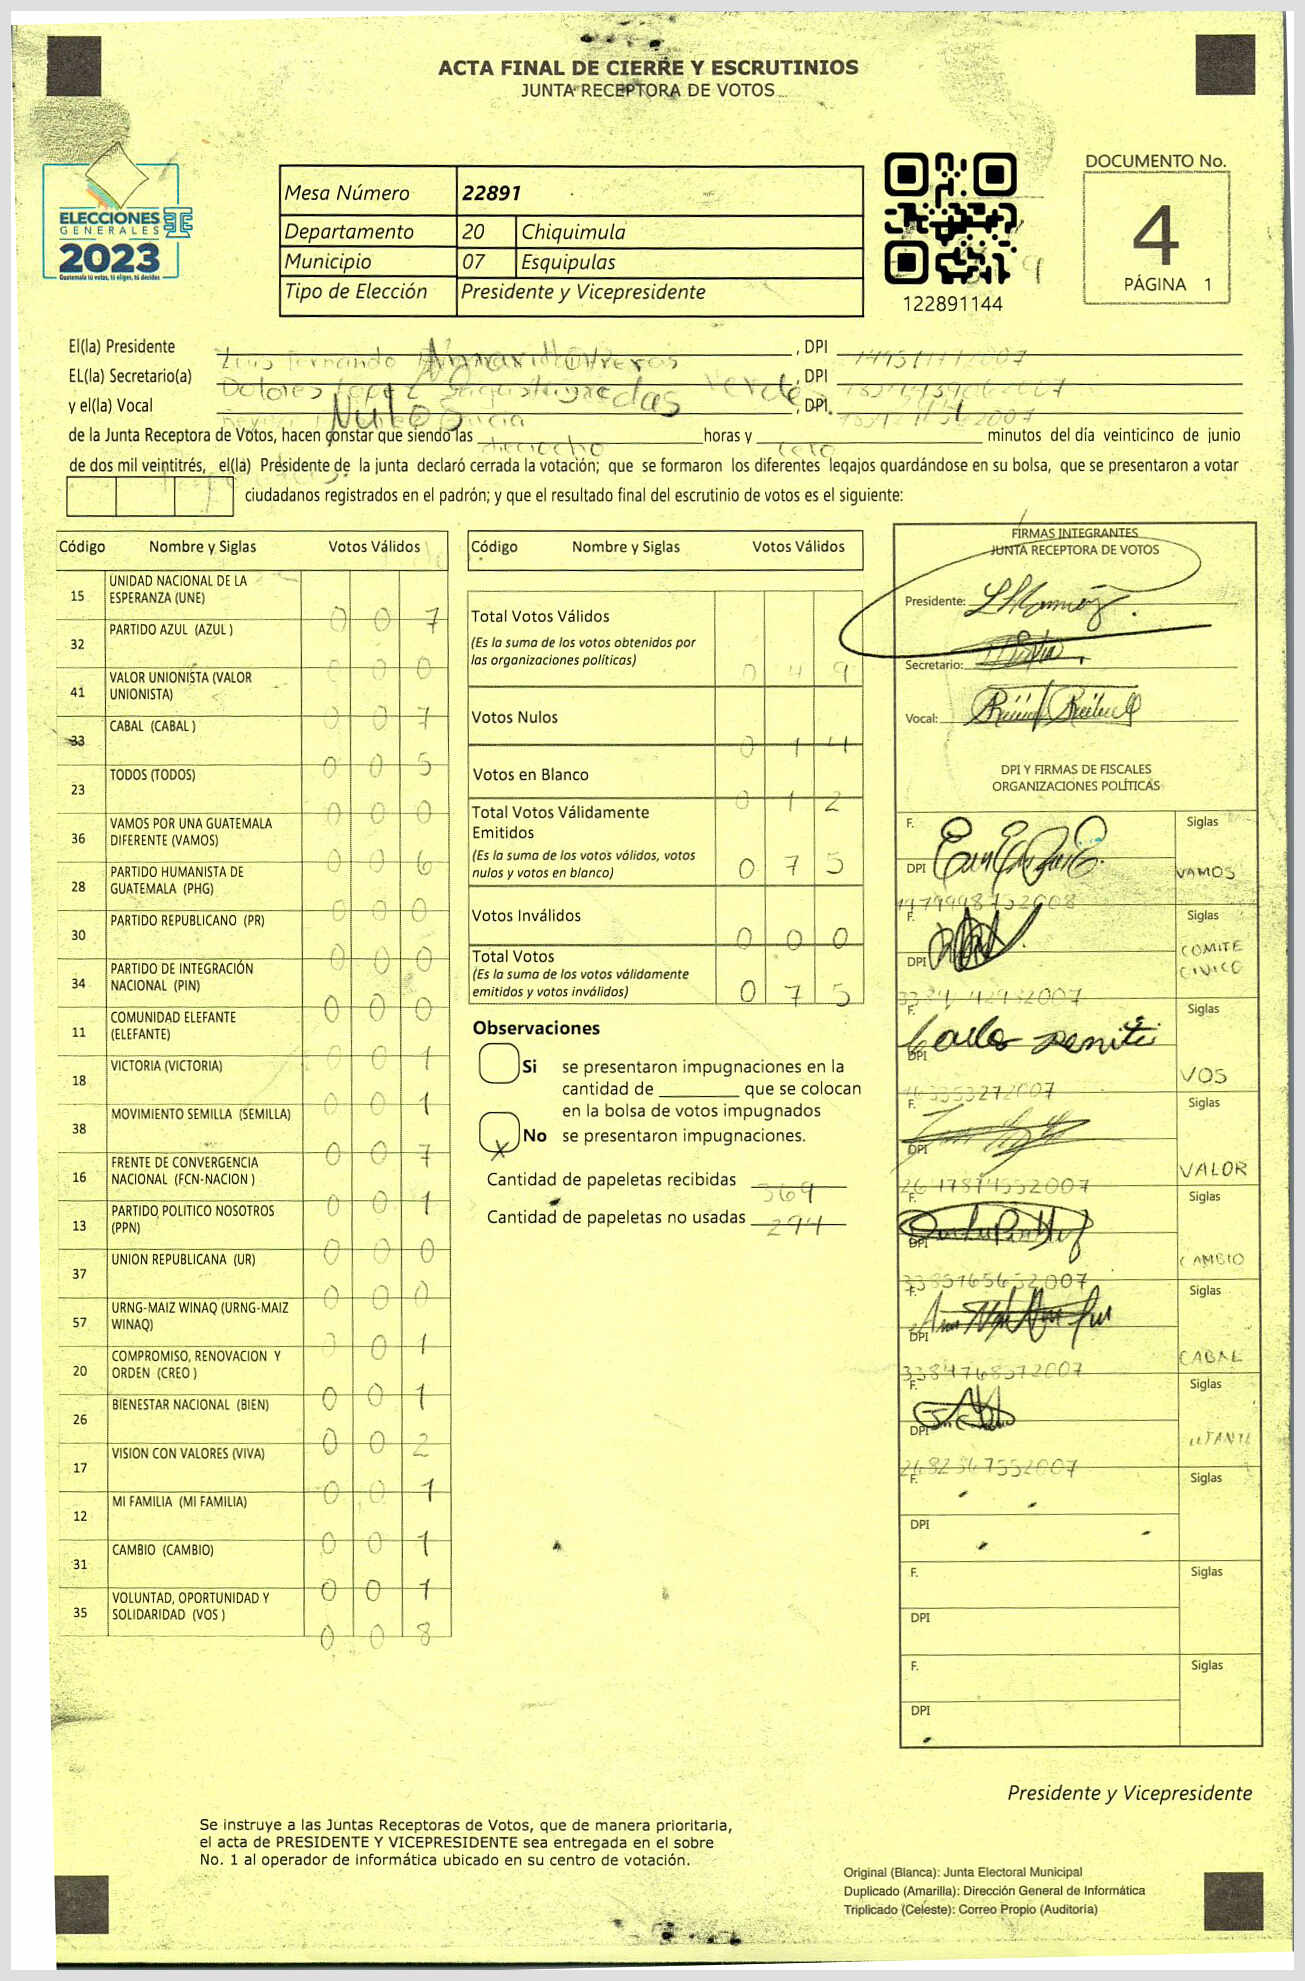 ACTA FINAL DE CIERRE Y ESCRUTINIOS
JUNTA RECEPTORA DE VOTOS
ELECCIONES
GENERALES
2023
Guatemala tú votas, tú eliges, tú decides
Mesa Número 22891
Departamento 20 Chiquimula
Municipio 07 Esquipulas
Tipo de Elección Presidente y Vicepresidente
122891144
DOCUMENTO No.
4
PÁGINA 1
El(la) Presidente Luis Fernando , DPI
EL(la) Secretario(a) Dolores Lopez , DPI
y el(la) Vocal , DPI.
Nulo
de la Junta Receptora de Votos, hacen constar que siendo las dieciocho horas y cero minutos del día veinticinco de junio
de dos mil veintitrés, el(la) Presidente de la junta declaró cerrada la votación; que se formaron los diferentes legajos guardándose en su bolsa, que se presentaron a votar
ciudadanos registrados en el padrón; y que el resultado final del escrutinio de votos es el siguiente:
Código Nombre y Siglas Votos Válidos
15 UNIDAD NACIONAL DE LA ESPERANZA (UNE) 0 0 7
32 PARTIDO AZUL (AZUL ) 0 0 0
41 VALOR UNIONISTA (VALOR UNIONISTA) 0 0 7
33 CABAL (CABAL ) 0 0 5
23 TODOS (TODOS) 0 0 0
36 VAMOS POR UNA GUATEMALA DIFERENTE (VAMOS) 0 0 6
28 PARTIDO HUMANISTA DE GUATEMALA (PHG) 0 0 0
30 PARTIDO REPUBLICANO (PR) 0 0 0
34 PARTIDO DE INTEGRACIÓN NACIONAL (PIN) 0 0 0
11 COMUNIDAD ELEFANTE (ELEFANTE) 0 0 1
18 VICTORIA (VICTORIA) 0 0 1
38 MOVIMIENTO SEMILLA (SEMILLA) 0 0 7
16 FRENTE DE CONVERGENCIA NACIONAL (FCN-NACION ) 0 0 1
13 PARTIDO POLITICO NOSOTROS (PPN) 0 0 0
37 UNION REPUBLICANA (UR) 0 0 0
57 URNG-MAIZ WINAQ (URNG-MAIZ WINAQ) 0 0 1
20 COMPROMISO, RENOVACION Y ORDEN (CREO ) 0 0 1
26 BIENESTAR NACIONAL (BIEN) 0 0 2
17 VISION CON VALORES (VIVA) 0 0 1
12 MI FAMILIA (MI FAMILIA) 0 0 1
31 CAMBIO (CAMBIO) 0 0 1
35 VOLUNTAD, OPORTUNIDAD Y SOLIDARIDAD (VOS ) 0 0 8
Código Nombre y Siglas Votos Válidos
Total Votos Válidos 0 4 9
(Es la suma de los votos obtenidos por
las organizaciones políticas)
Votos Nulos 0 1 4
Votos en Blanco 0 1 2
Total Votos Válidamente
Emitidos 0 7 5
(Es la suma de los votos válidos, votos
nulos y votos en blanco)
Votos Inválidos 0 0 0
Total Votos 0 7 5
(Es la suma de los votos válidamente
emitidos y votos inválidos)
Observaciones
Si se presentaron impugnaciones en la
cantidad de ________ que se colocan
en la bolsa de votos impugnados
X No se presentaron impugnaciones.
Cantidad de papeletas recibidas 369
Cantidad de papeletas no usadas 294
FIRMAS INTEGRANTES
JUNTA RECEPTORA DE VOTOS
Presidente:
Secretario:
Vocal:
DPI Y FIRMAS DE FISCALES
ORGANIZACIONES POLÍTICAS
F. Siglas
DPI VAMOS
F. Siglas
DPI COMITE
CIVICO
F. Siglas
DPI VOS
F. Siglas
DPI VALOR
F. Siglas
DPI CAMBIO
F. Siglas
DPI CABAL
F. Siglas
DPI
F. Siglas
DPI
F. Siglas
DPI
F. Siglas
DPI
Presidente y Vicepresidente
Se instruye a las Juntas Receptoras de Votos, que de manera prioritaria,
el acta de PRESIDENTE Y VICEPRESIDENTE sea entregada en el sobre
No. 1 al operador de informática ubicado en su centro de votación.
Original (Blanca): Junta Electoral Municipal
Duplicado (Amarilla): Dirección General de Informática
Triplicado (Celeste): Correo Propio (Auditoría)